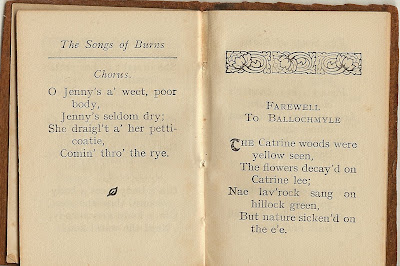 The Songs of Burns
Chorus.
O Jenny's a' weet, poor
body,
Jenny's seldom dry;
She draigl't a' her petti-
coatie,
Comin' thro' the rye.
FAREWELL
TO BALLOCHMYLE
THE Catrine woods were
yellow seen,
The flowers decay'd on
Catrine lee;
Nae lav'rock sang on
hillock green,
But nature sicken'd on
the e'e.